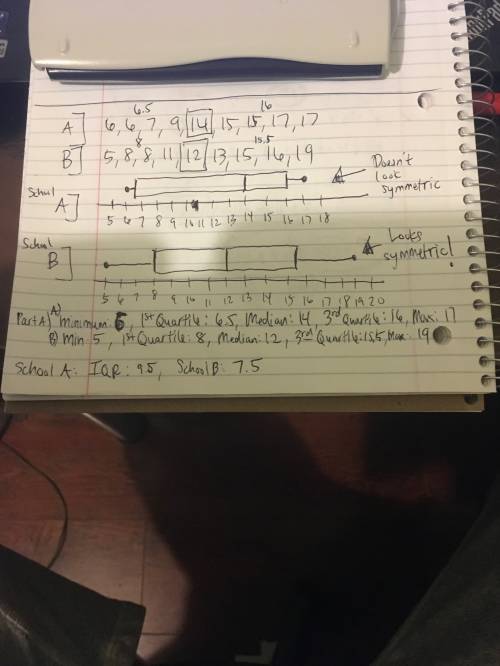 6.5 16
A] 6, 6, 7, 9, 14, 15, 15, 17, 17
8 15.5
B] 5, 8, 8, 11, 12, 13, 15, 16, 19
Doesn't look symmetric
School A]
5 6 7 8 9 10 11 12 13 14 15 16 17 18
School B]
Looks symmetric!
5 6 7 8 9 10 11 12 13 14 15 16 17 18 19 20
Part A) A) minimum: 6, 1st Quartile: 6.5, Median: 14, 3rd Quartile: 16, Max: 17
B) Min: 5, 1st Quartile: 8, Median: 12, 3rd Quartile: 15.5, Max: 19
School A: IQR: 9.5, School B: 7.5